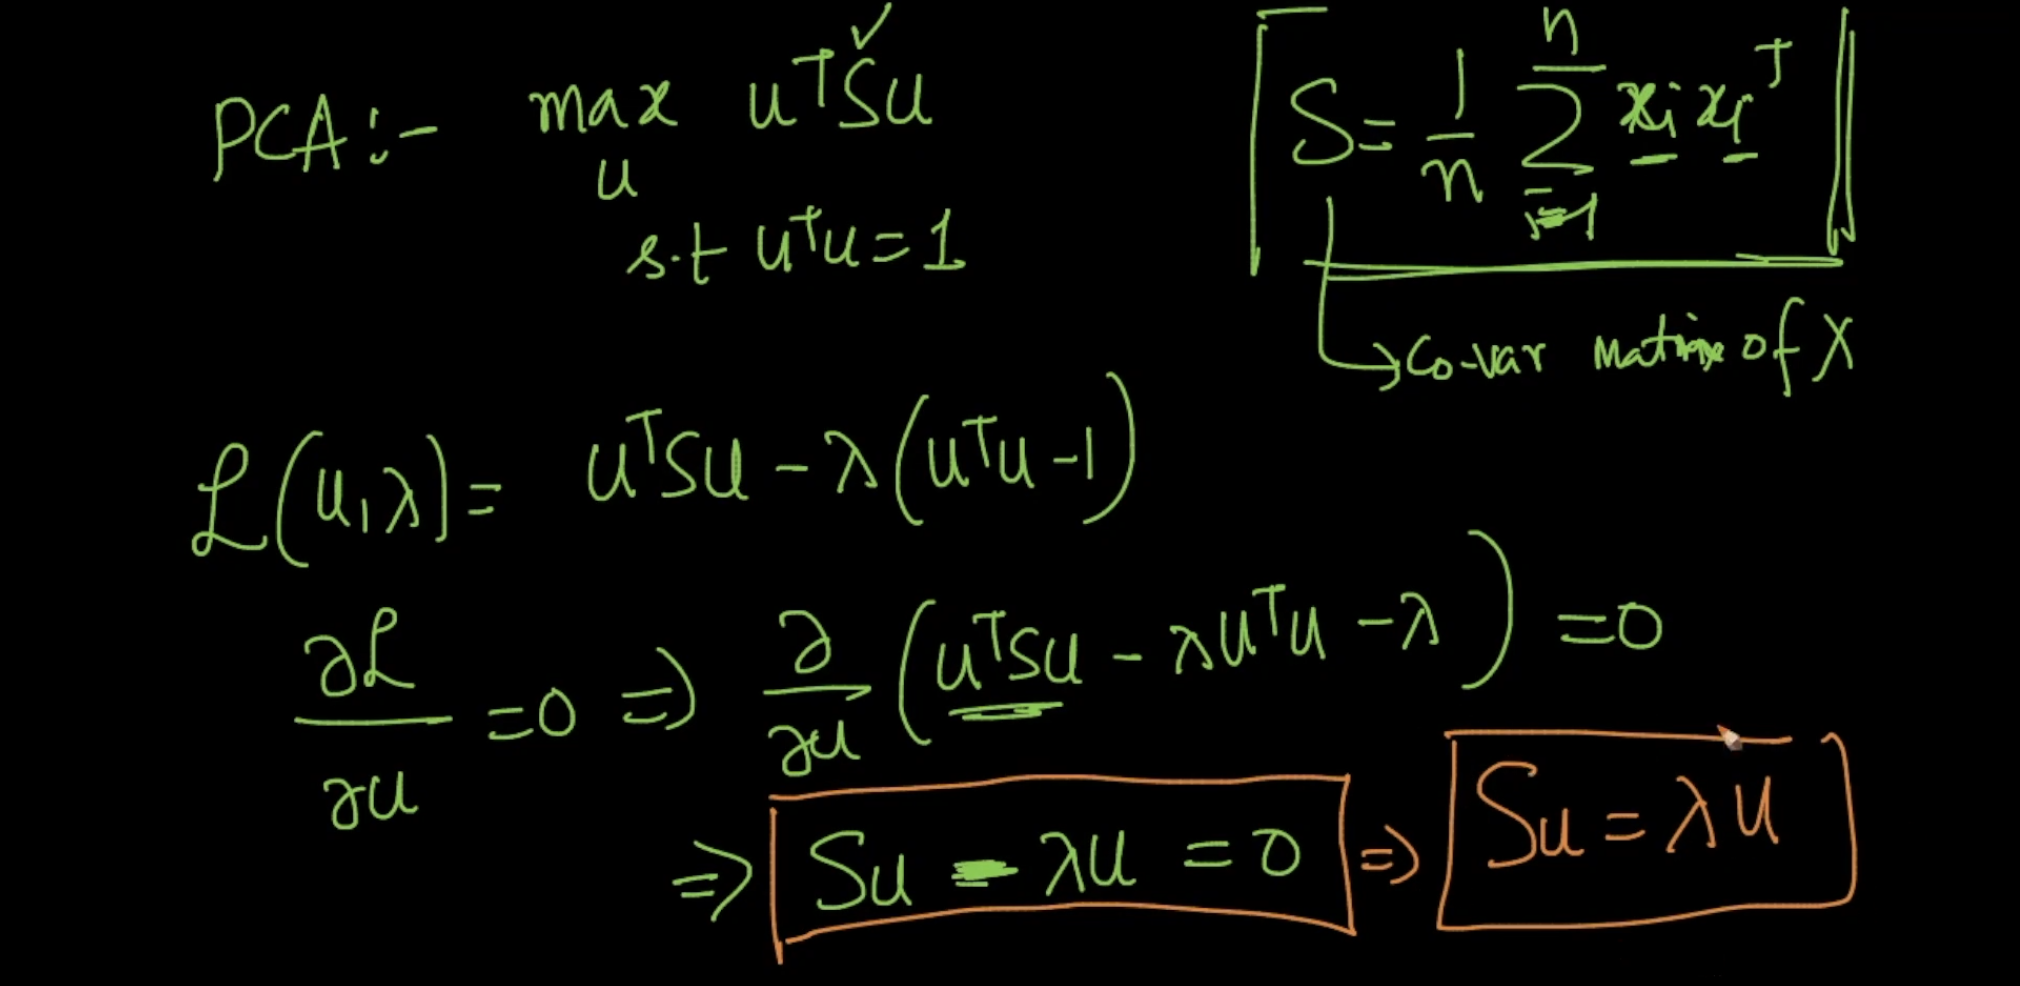 PCA:- max u^T S u
u
s.t u^T u = 1
S = 1/n ∑_{i=1}^{n} x_i x_i^T
→ Co-var matrix of X
ℒ(u, λ) = u^T S u - λ(u^T u - 1)
∂ℒ/∂u = 0 ⇒ ∂/∂u (u^T S u - λ u^T u - λ) = 0
⇒ Su - λu = 0 ⇒ Su = λu